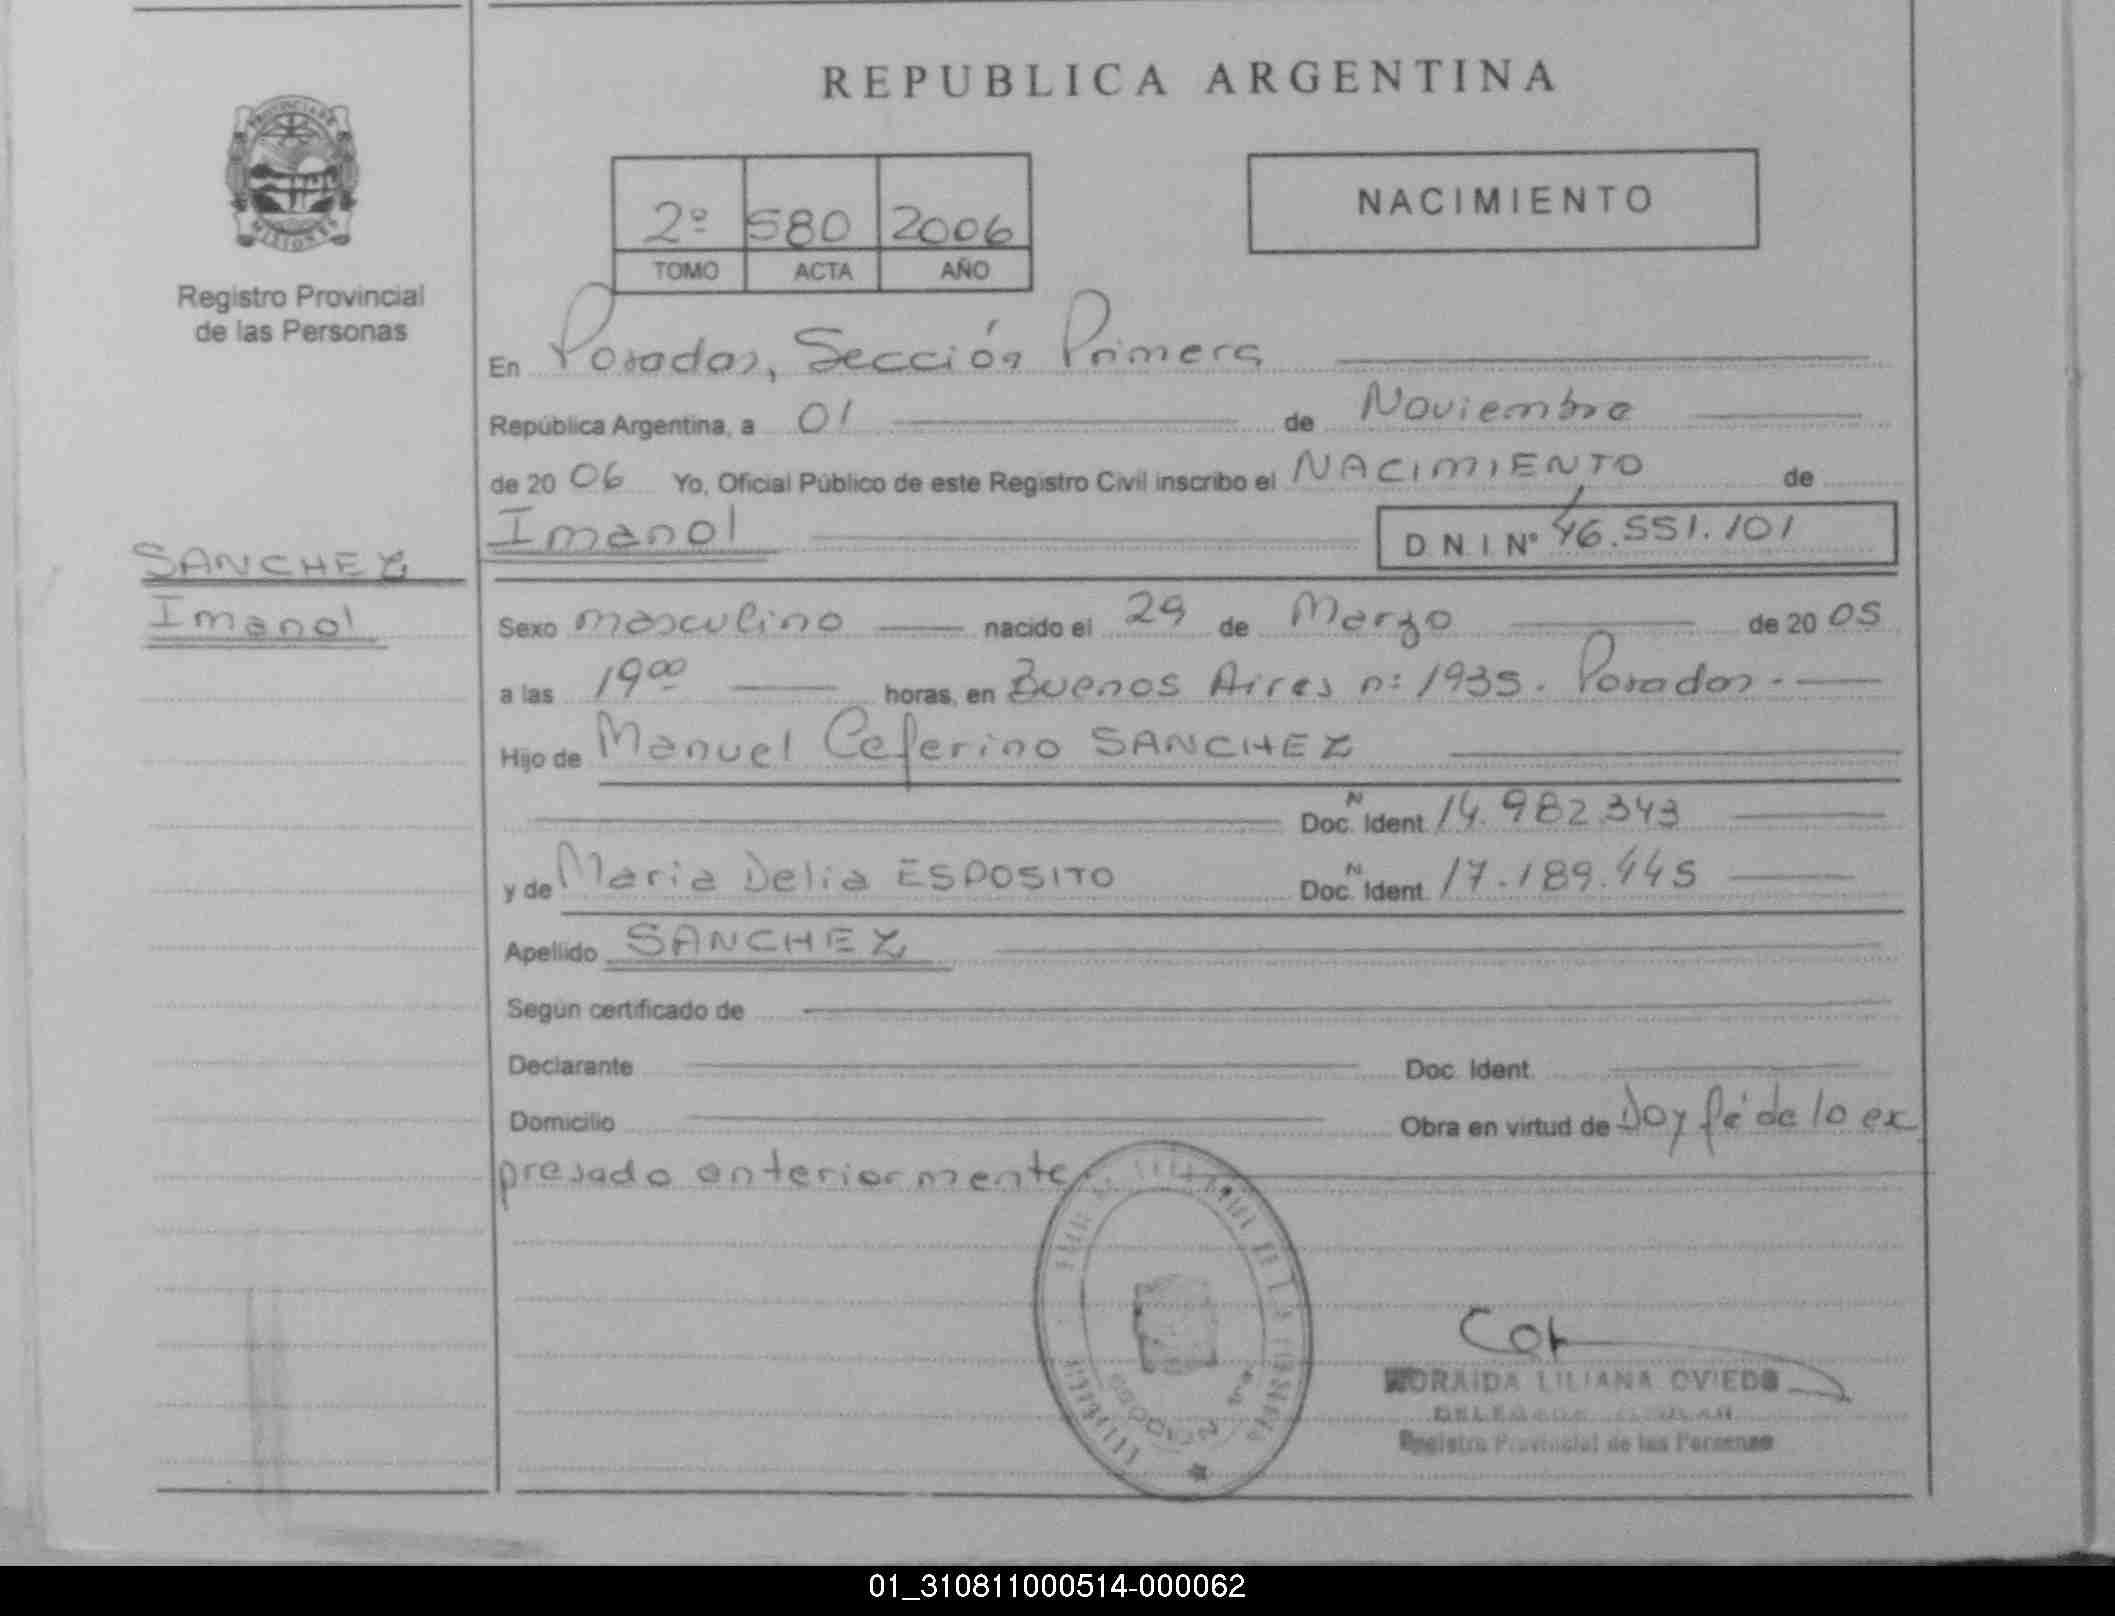 REPUBLICA ARGENTINA
PROVINCIA DE
MISIONES
Registro Provincial
de las Personas
2º 580 2006
TOMO ACTA AÑO
NACIMIENTO
En Posadas, Sección Primera
República Argentina, a 01 de Noviembre
de 20 06 Yo, Oficial Público de este Registro Civil inscribo el NACIMIENTO de
Imanol D N I Nº 46.551.101
SANCHEZ
Imanol
Sexo masculino nacido el 29 de Marzo de 20 05
a las 19 00 horas, en Buenos Aires nº 1935. Posadas.
Hijo de Manuel Ceferino SANCHEZ
Doc. N Ident. 14.982.343
y de Maria Delia ESPOSITO Doc. N Ident. 17.189.445
Apellido SANCHEZ
Según certificado de
Declarante Doc. Ident.
Domicilio Obra en virtud de Doy fé de lo ex
presado anteriormente
LILIANA OVIEDO
Registro Provincial de las Personas
01_310811000514-000062